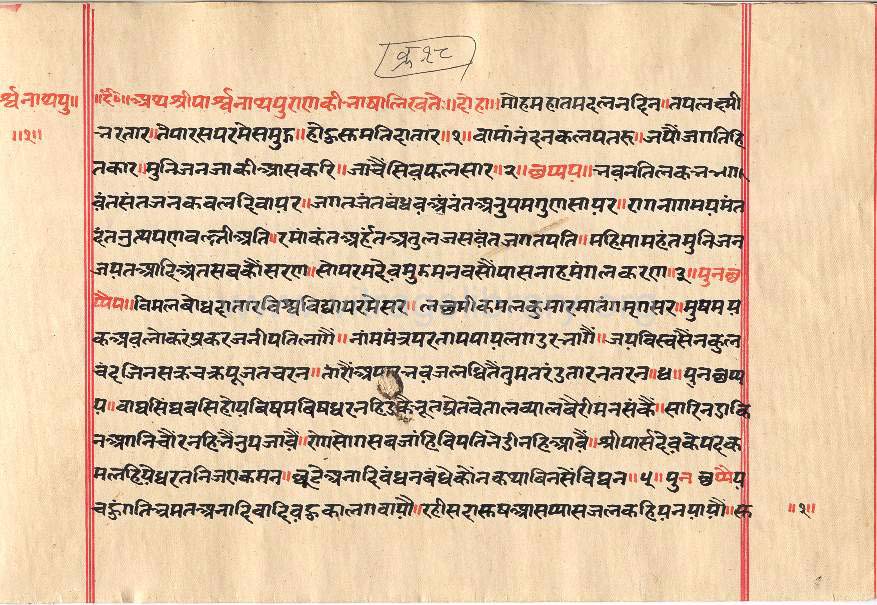 क्र १८
र्श्वनाथपु॥
॥१॥
॥र्द०॥अथश्रीपार्श्वनाथपुराणकीभाषालिख्यते॥दोहा॥मोहमहातमदलनदिन॥तपलक्ष्मी
भरतार॥तेपारसपरमेसमुझ॥होहुसुमतिदातार॥१॥वामांनंदनकलपतरु॥जयौजगतहि
तकार॥मुनिजनजाकीआसकरि॥जाचैसिवफलसार॥२॥छप्पय॥भवनतिलकभग
वंतसंतजनकवलदिवायर॥जगतजंतबंधवअनंतअनुपमगुणसायर॥रागनागमयमंत
दंतनुत्थपणवलीअति॥रमाकंतअर्हंतअतुलजसवंतजगतपति॥महिमामहंतमुनिजन
जपतआदिअंतसबकौंसरण॥सोपरमदेवमुझमनवसौंपासनाहमंगलकरण॥३॥पुनछ
प्पै॥विमलबोधदातारविश्वविद्यापरमेसर॥लछमीकमलकुमारमारमातंगमृगेसर॥मुषमयं
कअवलोकरंकरजनीपतिलागै॥नांममंत्रपरतापपापपन्नगडरभागै॥जयविस्वसैनकुल
चंदजिनसक्रचक्रपूजतचरन॥तारौअपारभवजलधितैंतुमतरंडतारनतरन॥४॥पुनछप्प
य॥वाघसिंघवसिहोयविषमविषधरनहिडंकैभूतप्रेतवेतालव्यालबैरीमनसंकैं॥साकिनडाकि
नअगनिचौरनहिभैनुपजावैं॥रोगसोगसबजांहिविपतिनेडीनहिआवैं॥श्रीपार्सदेवकेपदक
मलहियेधरतनिजएकमन॥छूटेअनादिबंधनबंधेकौंनकथाविनसेंविघन॥५॥पुनछप्पैय
चहुंगतिभ्रमतअनादिवादिवहुकालगवायौ॥रहीसदासुषआसप्यासजलकहिपनपायौ॥सु
॥१॥